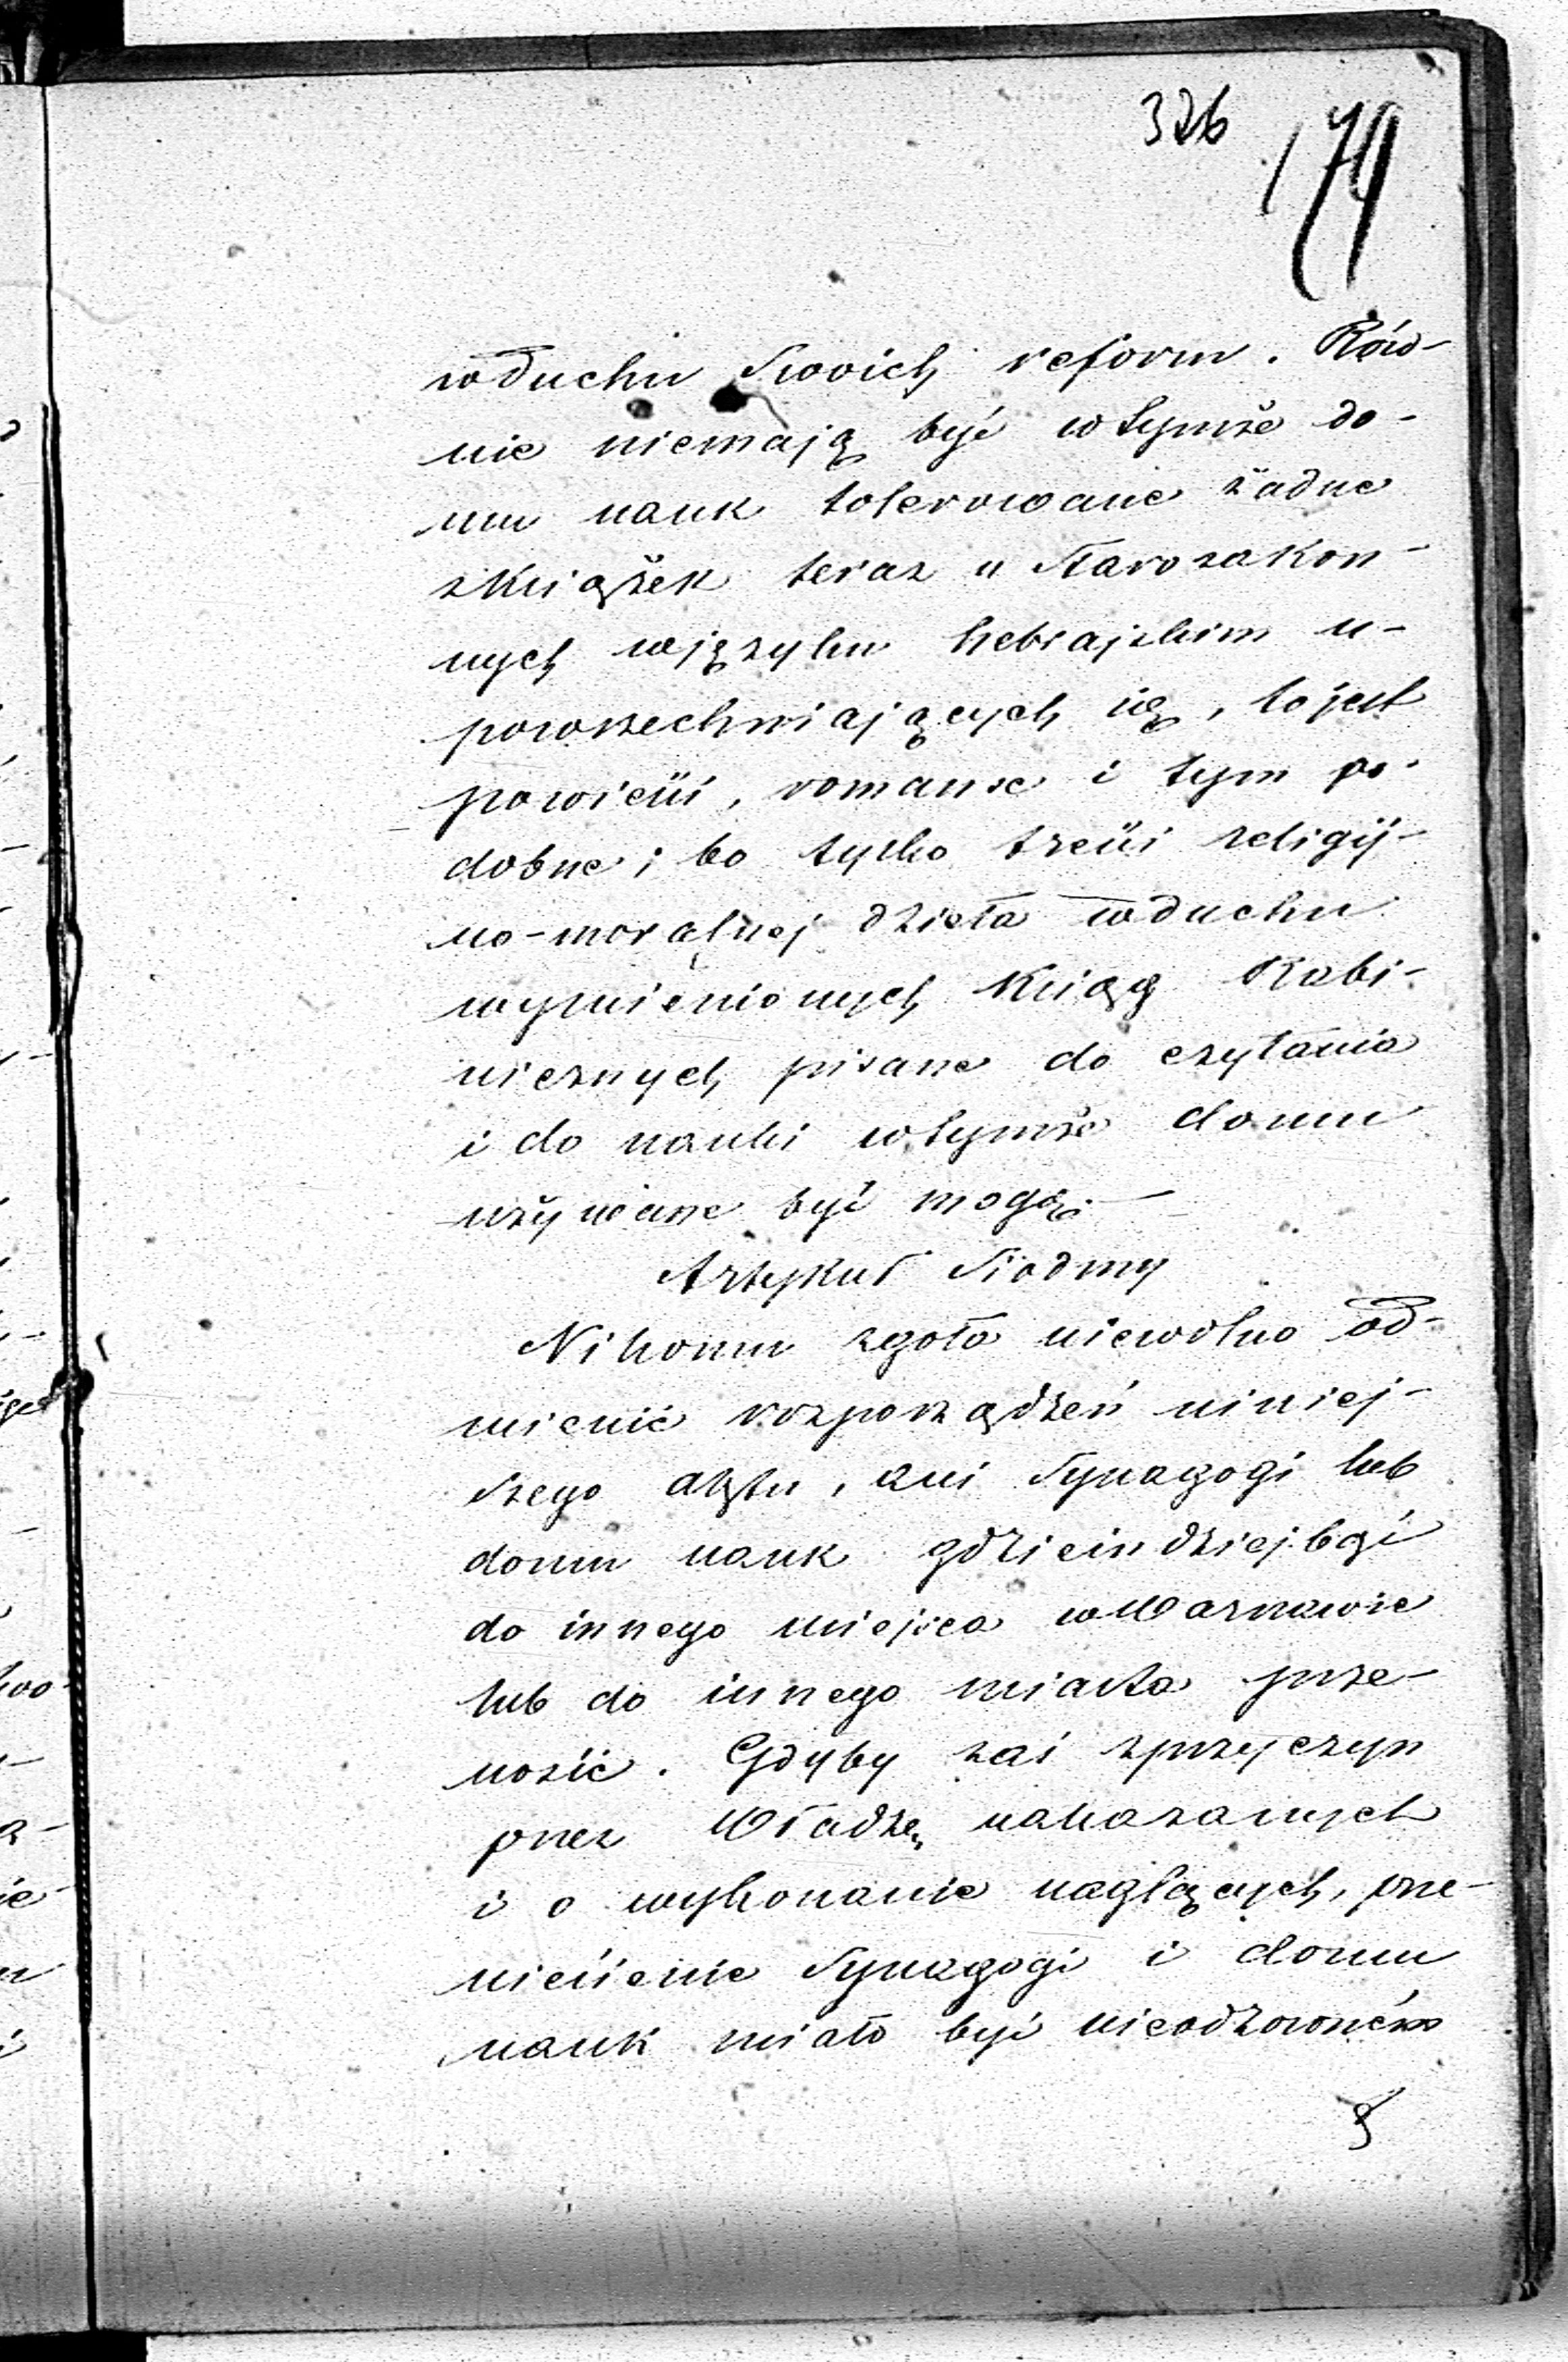 326
174
w duchu swoich reform. Rów-
nie niemają być w tymże do-
mu nauk tolerowane żadne
z książek teraz u Starozakon-
nych w języku hebrajskim u-
powszechniających się, to jest
powieści, romanse i tym po-
dobne; bo tylko treści religij-
no-moralnej dzieła w duchu
wymienionych Ksiąg Rabi-
nicznych pisane do czytania
i do nauki w tymże domu
używane być mogą. —
Artykuł Siódmy
Nikomu zgoła niewolno od-
mienić rozporządzeń niniej-
szego aktu, ani Synagogi lub
domu nauk gdzieindziej bąć
do innego miejsca w Warszawie
lub do innego miasta prze-
nosić. Gdyby zaś z przyczyn
przez Władzę nakazanych
i o wykonanie naglących, prze-
niesienie Synagogi i domu
nauk miało być nieodzowném